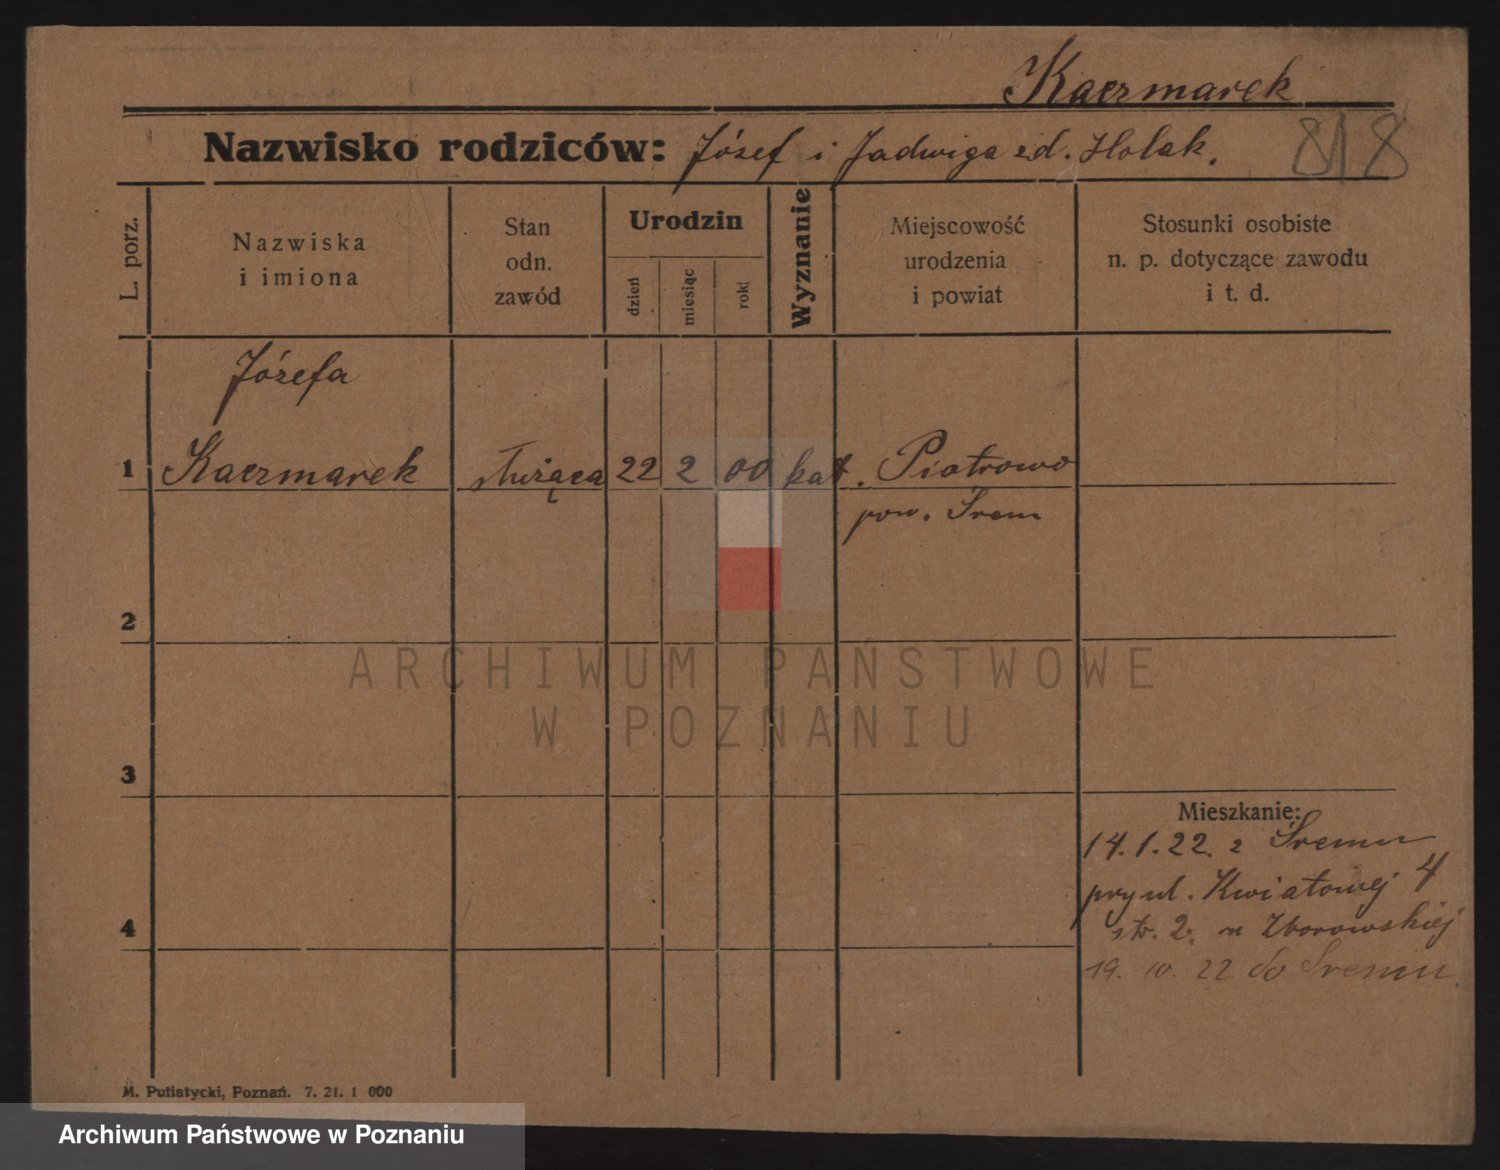 Kaczmarek
Nazwisko rodziców: Józef i Jadwiga zd. Holak.
818
L. porz.
Nazwiska
i imiona
Stan
odn.
zawód
Urodzin
dzień
miesiąc
rok
Wyznanie
Miejscowość
urodzenia
i powiat
Stosunki osobiste
n. p. dotyczące zawodu
i t. d.
Józefa
1 Kaczmarek służąca 22 2 00 kat. Piotrowo
pow. Śrem
2
ARCHIWUM PAŃSTWOWE
W POZNANIU
3
Mieszkanie:
14.1.22. z Śremu
przy ul. Kwiatowej 4
str. 2. u Zborowskiej
4
19. 10. 22 do Śremu.
M. Putiatycki, Poznań. 7. 21. 1 000
Archiwum Państwowe w Poznaniu